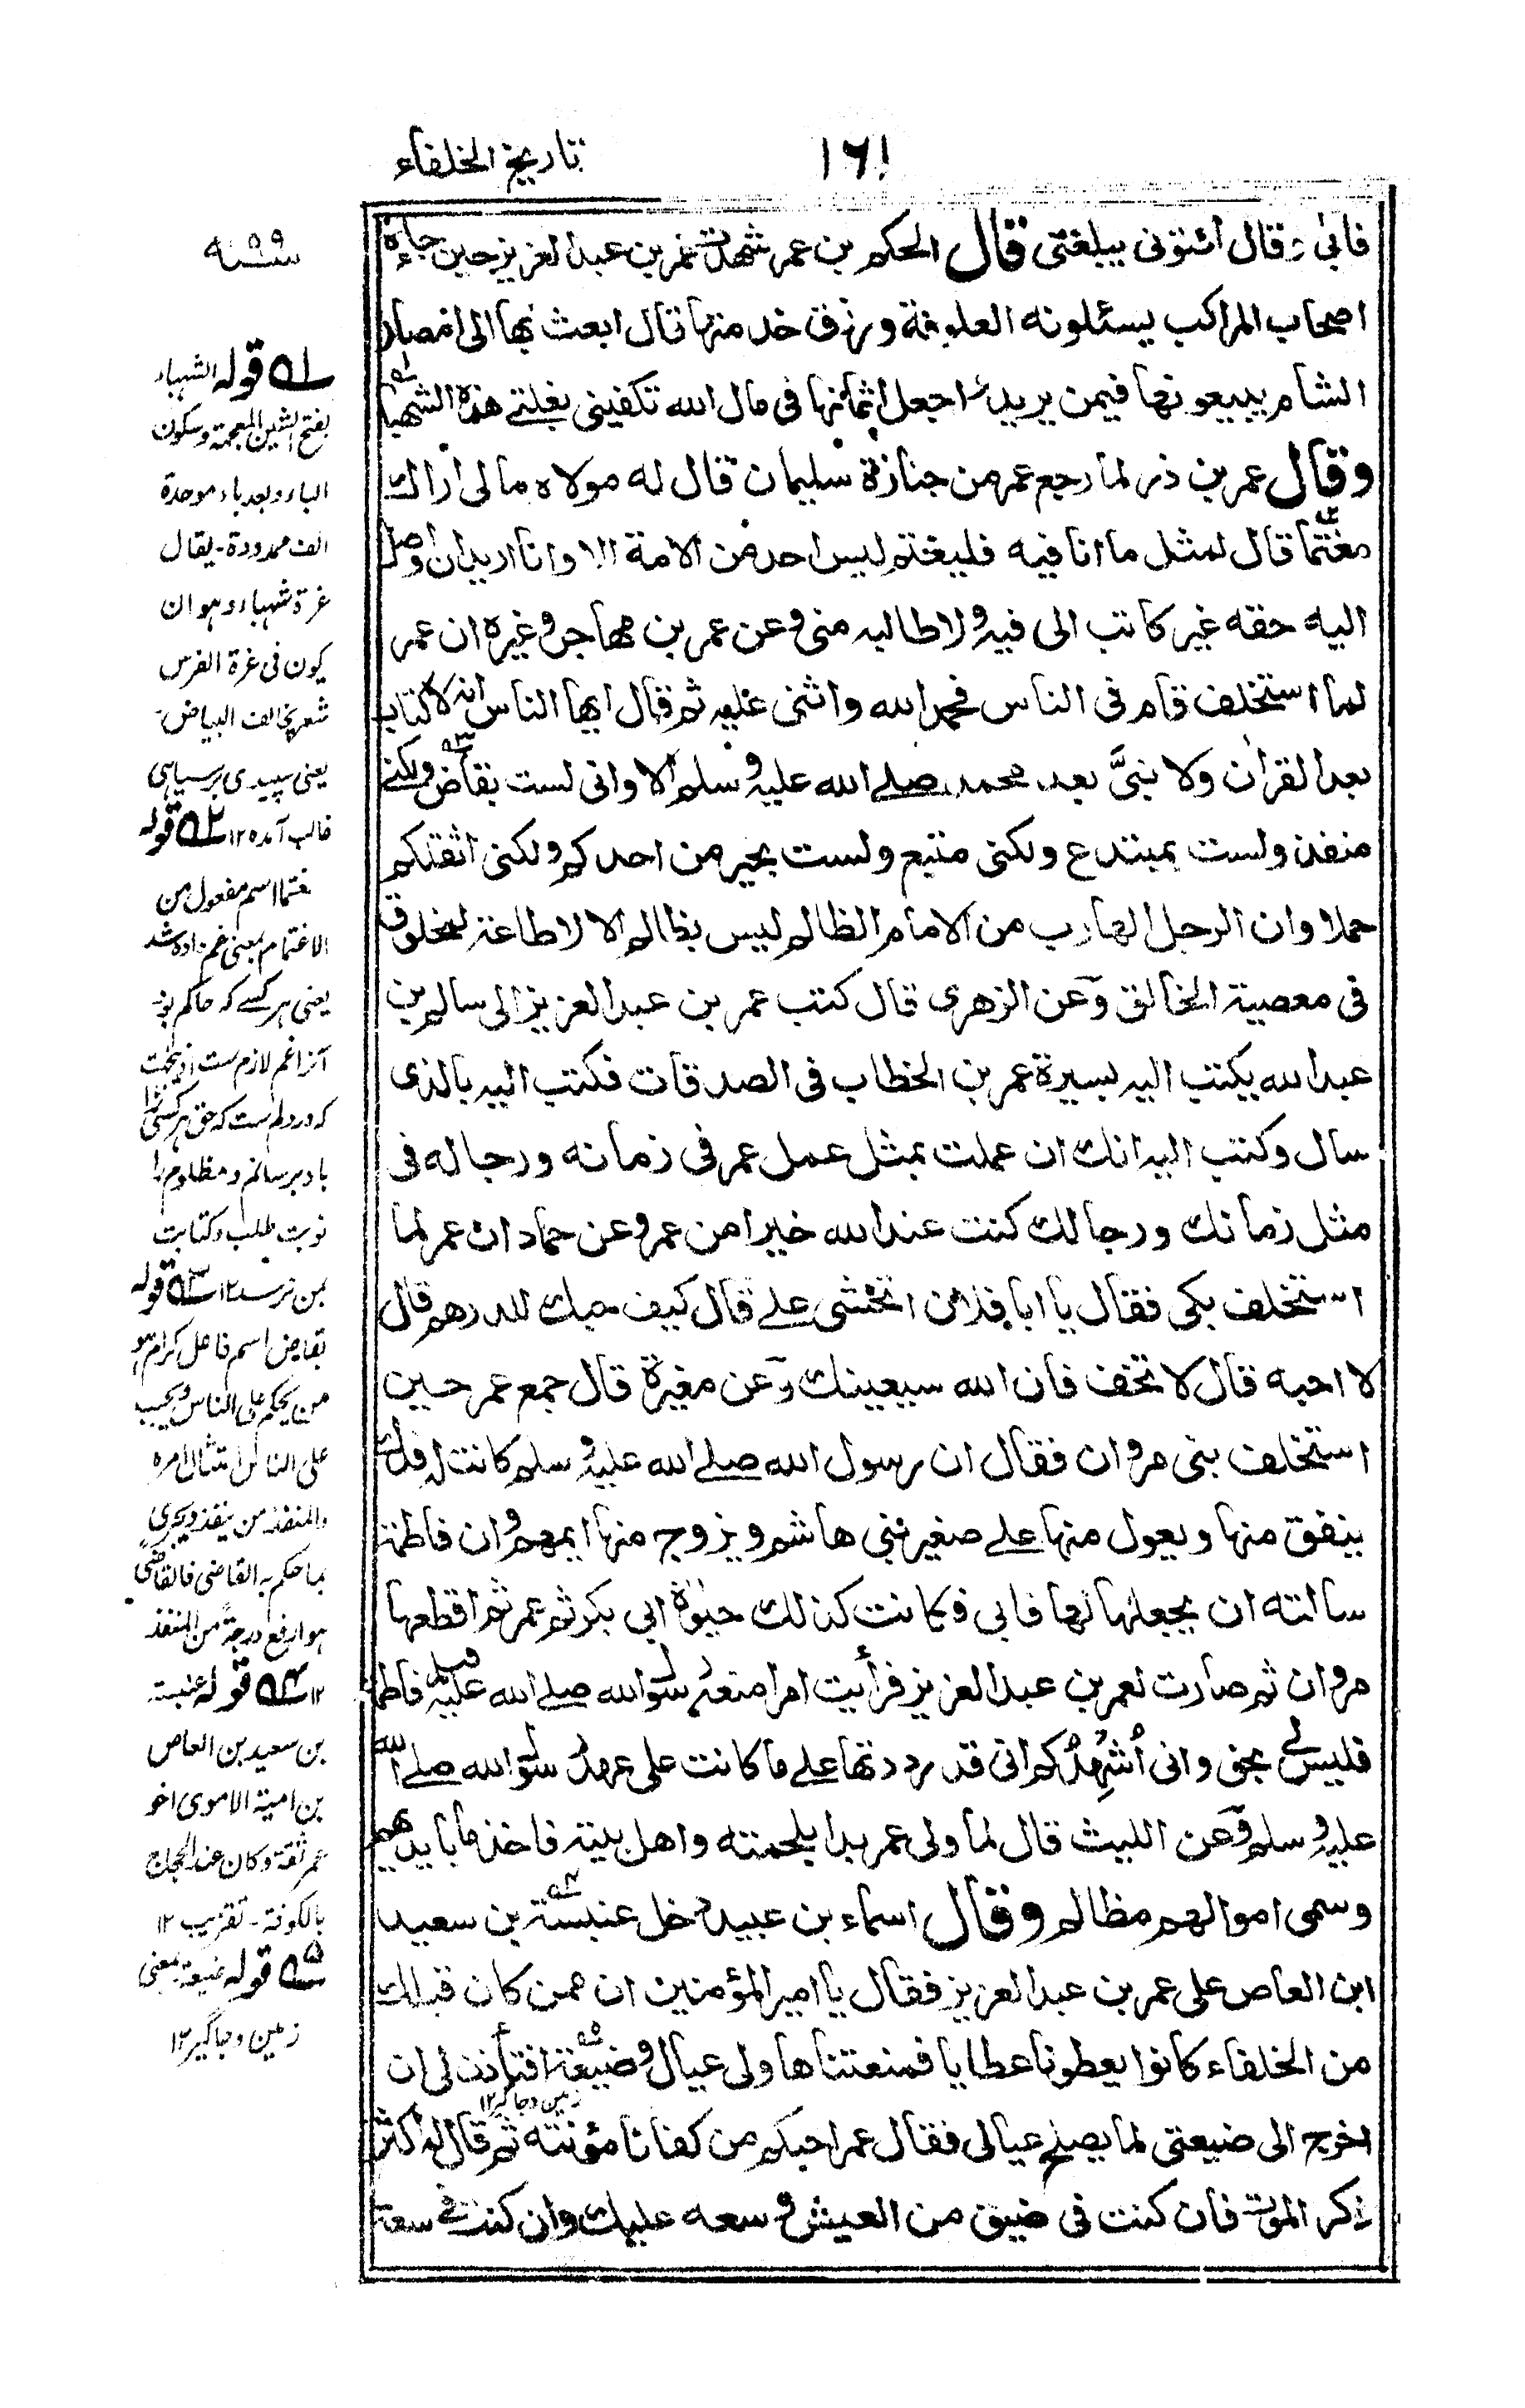 ١٦١
تاريخ الخلفاء
فابى وقال ائتونى ببلغتى قال الحكم بن عمر شهدت عمر بن عبد العزيز حين جاءه
اصحاب المراكب يسئلونه العلوفة ورزق خدمتها قال ابعث بها الى امصار
الشام يبيعونها فيمن يريد واجعل اثمانها فى مال الله تكفينى بغلتے هذه الشهباء
وقال عمر بن ذر لما رجع عمر من جنازة سليمان قال له مولاه مالى اراك
مغتما قال لمثل ما انا فيه فليغتم ليس احد من الامة الا وانا اريد ان اوصل
اليه حقه غير كاتب الى فيه ولا طالبه منى وعن عمر بن مهاجر وغيره ان عمر
لما استخلف قام فى الناس فحمد الله واثنى عليه ثم قال ايها الناس انه لا كتاب
بعد القران ولا نبىَّ بعد محمد صلے الله عليه وسلم الا وانى لست بقاض ولكنے
منفذ ولست بمبتدع ولكنى متبع ولست بخير من احدكم ولكنى اثقلكم
حملا وان الرجل الهارب من الامام الظالم ليس بظالم الا لا طاعة لمخلوق
فى معصية الخالق وعن الزهرى قال كتب عمر بن عبد العزيز الى سالم بن
عبد الله يكتب اليه بسيرة عمر بن الخطاب فى الصدقات فكتب اليه بالذى
سال وكتب اليه انك ان عملت بمثل عمل عمر فى زمانه ورجاله فى
مثل زمانك ورجالك كنت عند الله خيرا من عمر وعن حماد ان عمر لما
استخلف بكى فقال يا ابا فلان اتخشى علے قال كيف حبك للدرهم قال
لا احبه قال لا تخف فان الله سيعينك وعن مغيرة قال جمع عمر حين
استخلف بنى مروان فقال ان رسول الله صلے الله عليه وسلم كانت له فدك
ينفق منها ويعول منها علے صغير بنى هاشم ويزوج منها ايمهم وان فاطمة
سالته ان يجعلها لها فابى فكانت كذلك حيٰوة ابى بكر ثم عمر ثم اقطعها
مروان ثم صارت لعمر بن عبد العزيز فرأيت امرا منعه رسول الله صلے الله عليه وسلم فاطمة
فليس لے بحق وانى اُشهِدُكم انى قد رددتها علے ما كانت على عهد رسول الله صلے الله
عليه وسلم وعن الليث قال لما ولى عمر بدا بلحمته واهل بيته فاخذ ما بايديهم
وسمى اموالهم مظالم وقال اسماء بن عبيد دخل عنبسة بن سعيد
ابن العاص على عمر بن عبد العزيز فقال يا امير المؤمنين ان من كان قبلك
من الخلفاء كانوا يعطونا عطايا فمنعتناها ولى عيال وضيعة افتأذن لى ان
زمين وجاگير ١٢
اخرج الى ضيعتى لما يصلح عيالى فقال عمر احبكم من كفانا مؤنته ثم قال له اكثر
ذكر الموت فان كنت فى ضيق من العيش وسعه عليك وان كنت فے سعة
سنه ٩٩
له قوله الشهباء
بفتح الشين المعجمة وسكون
الباء وبعد باء موحدة
الف ممدودة - يقال
غرة شهباء وهو ان
يكون فى غرة الفرس
شعر يخالف البياض
يعنى سپيدى بر سياہى
غالب آمده ١٢ ٢ه قوله
مغتما اسم مفعول من
الاغتمام بمعنى غم داده شد
يعنى ہر كسے كہ حاكم بود
آنرا غم لازم ست
كہ در دلم ست كہ حق ہر كس
باو برسانم ومظلوم را
نوبت طلب وكتابت
بمن نرسد ١٢ ٣ه قوله
بقاض اسم فاعل كرام هو
من يحكم على الناس ويجب
على الناس امتثال امره
والمنفذ من ينفذ ويجرى
بما حكم به القاضى فالقاضى
هو ارفع درجة من المنفذ
١٢ ٤ه قوله عنبسة
بن سعيد بن العاص
بن امية الاموى اخو
عمر ثقة وكان عند الحجاج
بالكوفة - تقريب ١٢
٥ه قوله ضيعة بمعنى
زمين وجاگير ١٢